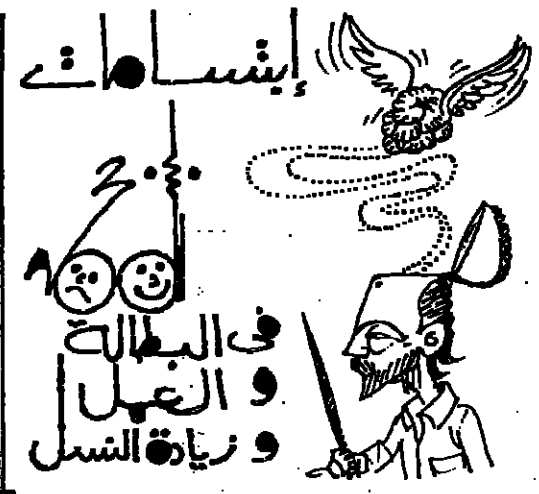 إبتسامات
فى البطالة
و العمل
و زيادة النسل